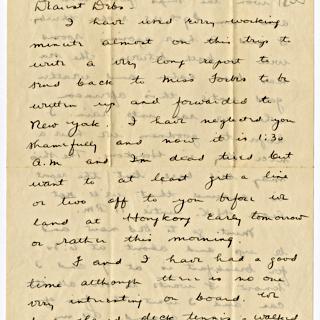 Dearest Debs:
I have used every working
minute almost on this trip to
write a very long report to
send back to Miss Forbes to be
written up and forwarded to
New York. I have neglected you
shamefully and now it is 1:30
A.M. and I'm dead tired but
want to at least get a line
or two off to you before we
land at Hongkong early tomorrow
or rather this morning.
J and I have had a good
time although there is no one
very interesting on board. We
played deck tennis & walked